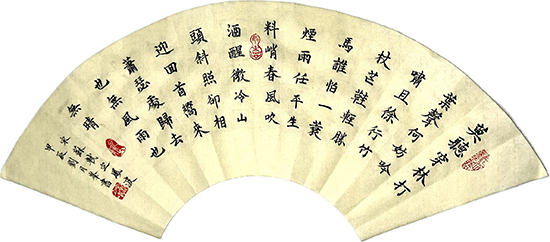 莫聽穿林打
葉聲何妨吟
嘯且徐行竹
杖芒鞋輕勝
馬誰怕一蓑
煙雨任平生
料峭春風吹
酒醒微冷山
頭斜照卻相
迎回首嚮來
蕭瑟處歸去
也無風雨也
無晴
宋蘇軾定風波
甲辰劉月華書